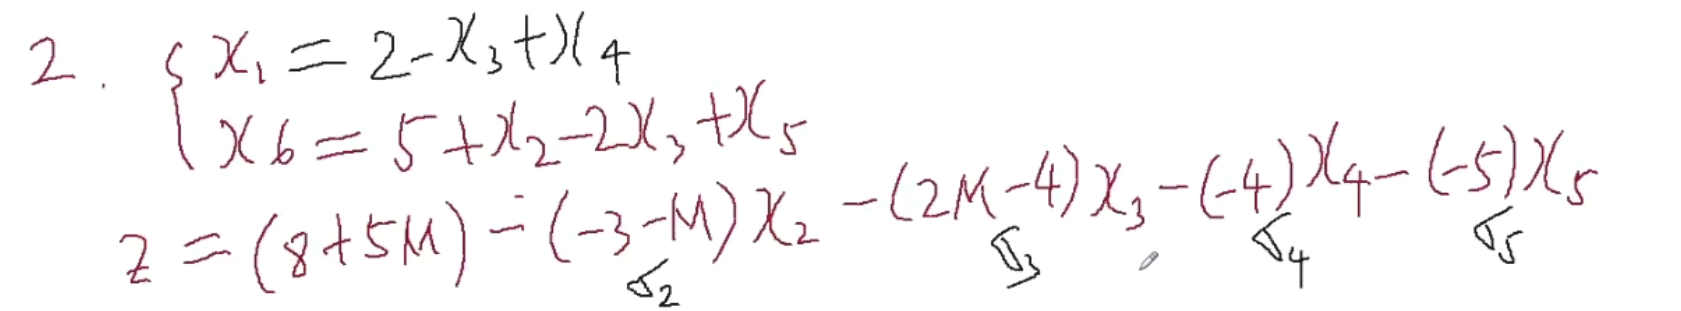 2. { x₁ = 2 - x₃ + x₄
x6 = 5 + x₂ - 2x₃ + x₅
z = (8+5M) - (-3-M)x₂ - (2M-4)x₃ - (-4)x₄ - (-5)x₅
σ₂ σ₃ σ₄ σ₅